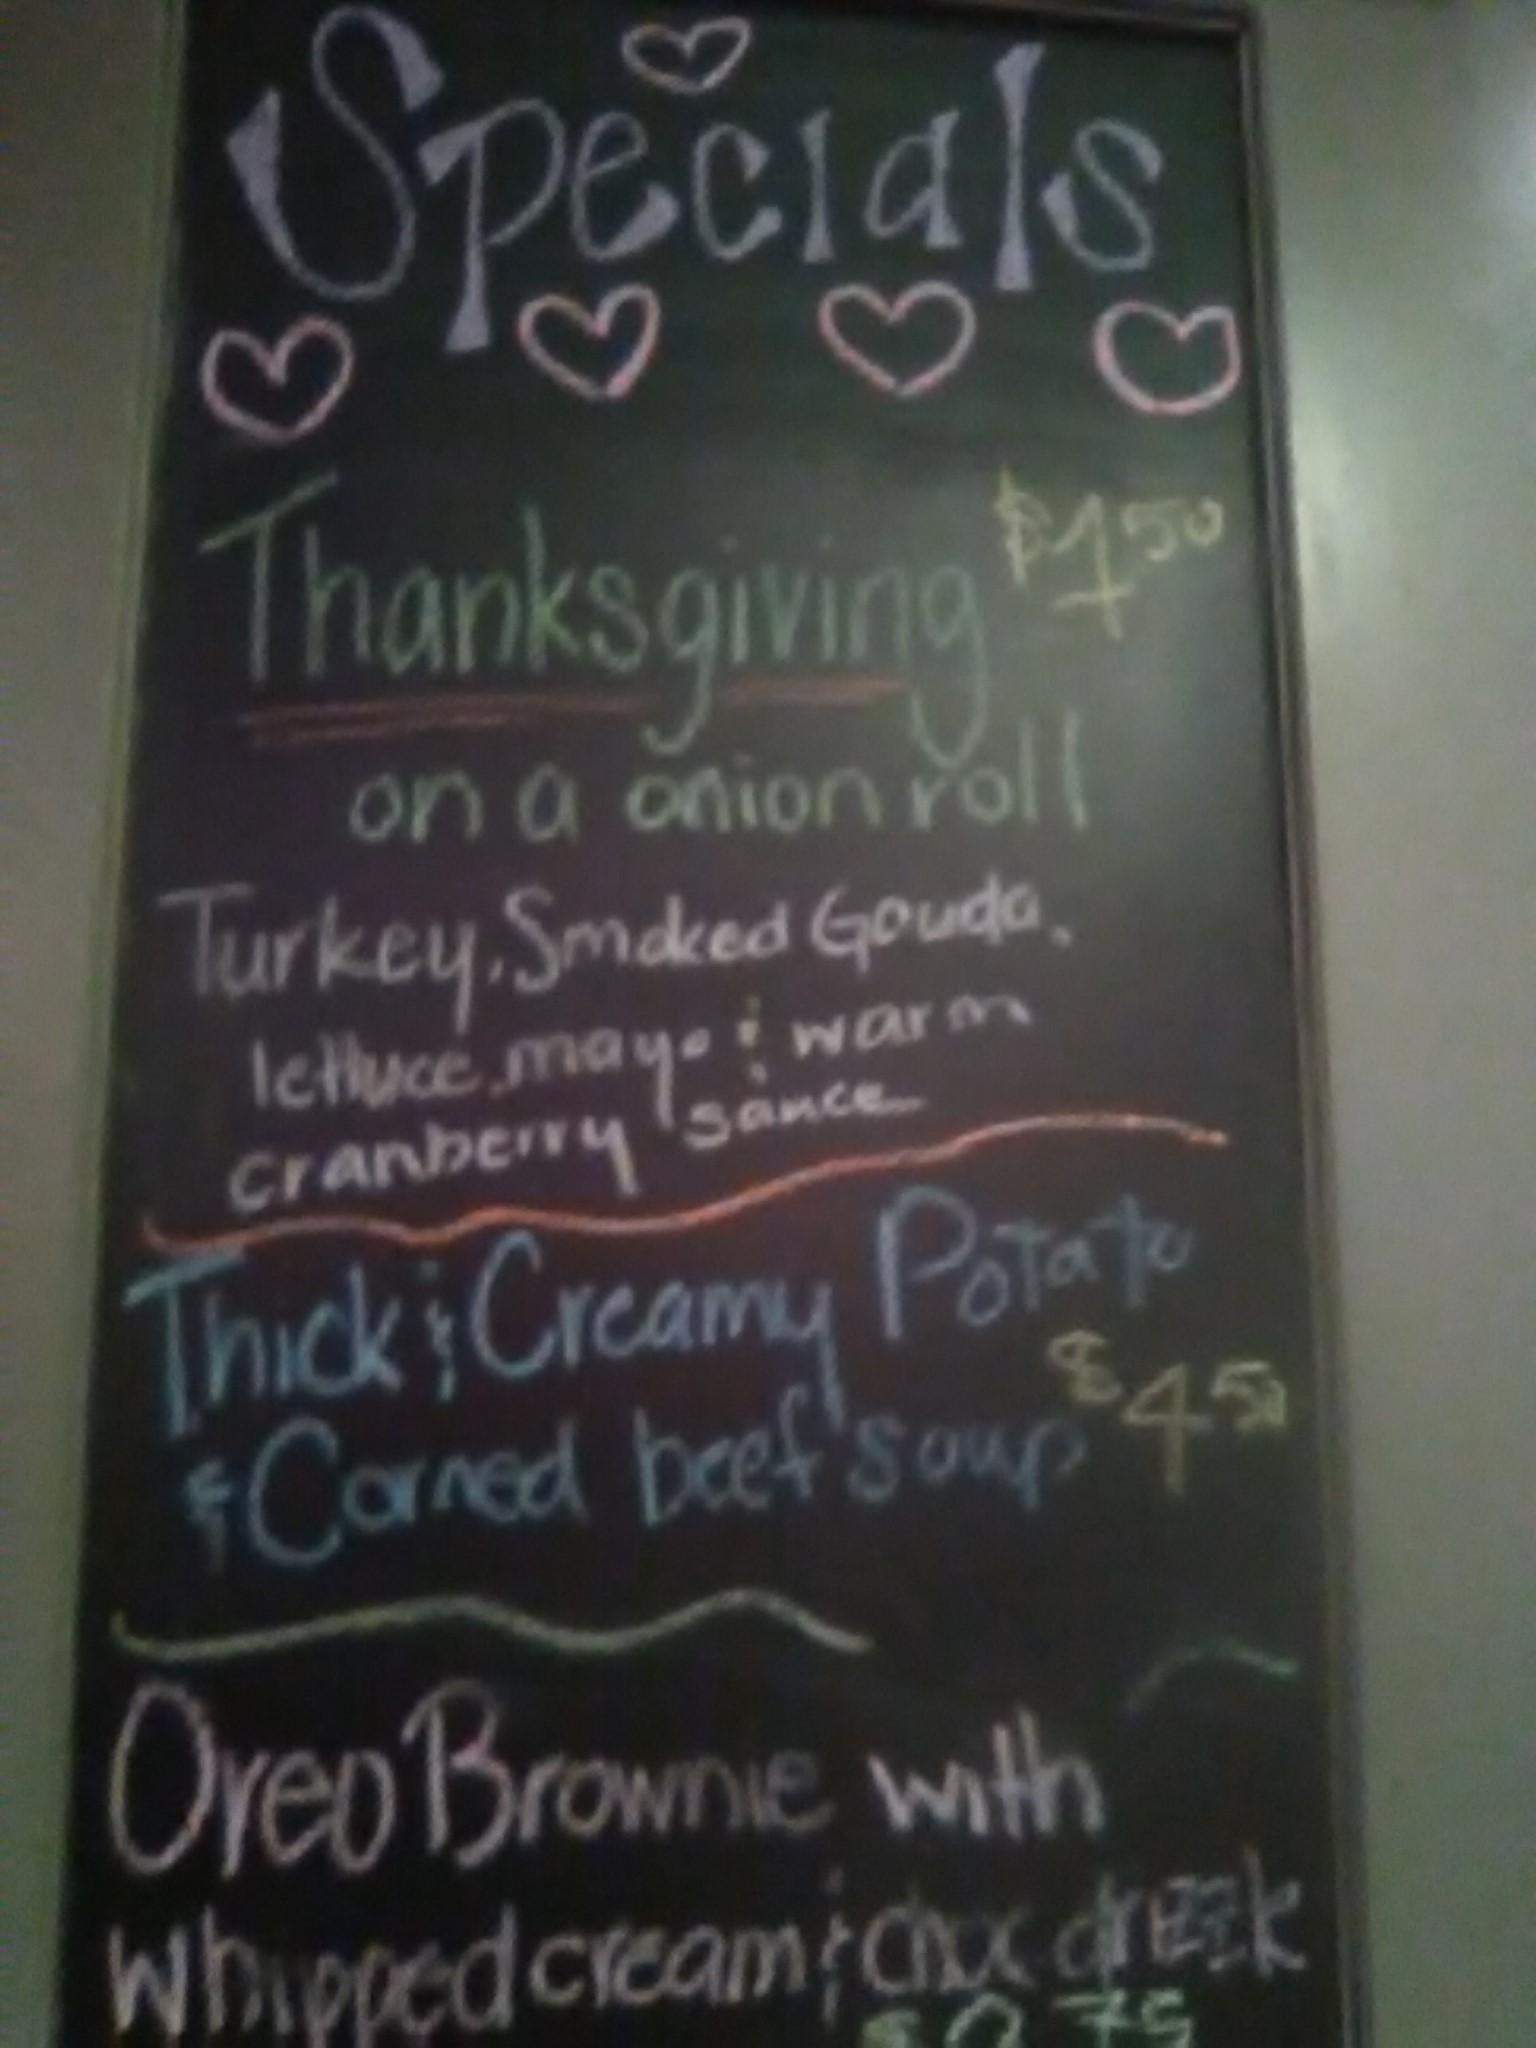 Specials
Thanksgiving
on a onion roll
Turkey, Smoked Gouda,
lettuce, mayo & warm
cranberry sauce
Thick & Creamy Potato
& Corned beef soup $4 50
Oreo Brownie with
whipped cream & choc drizzle